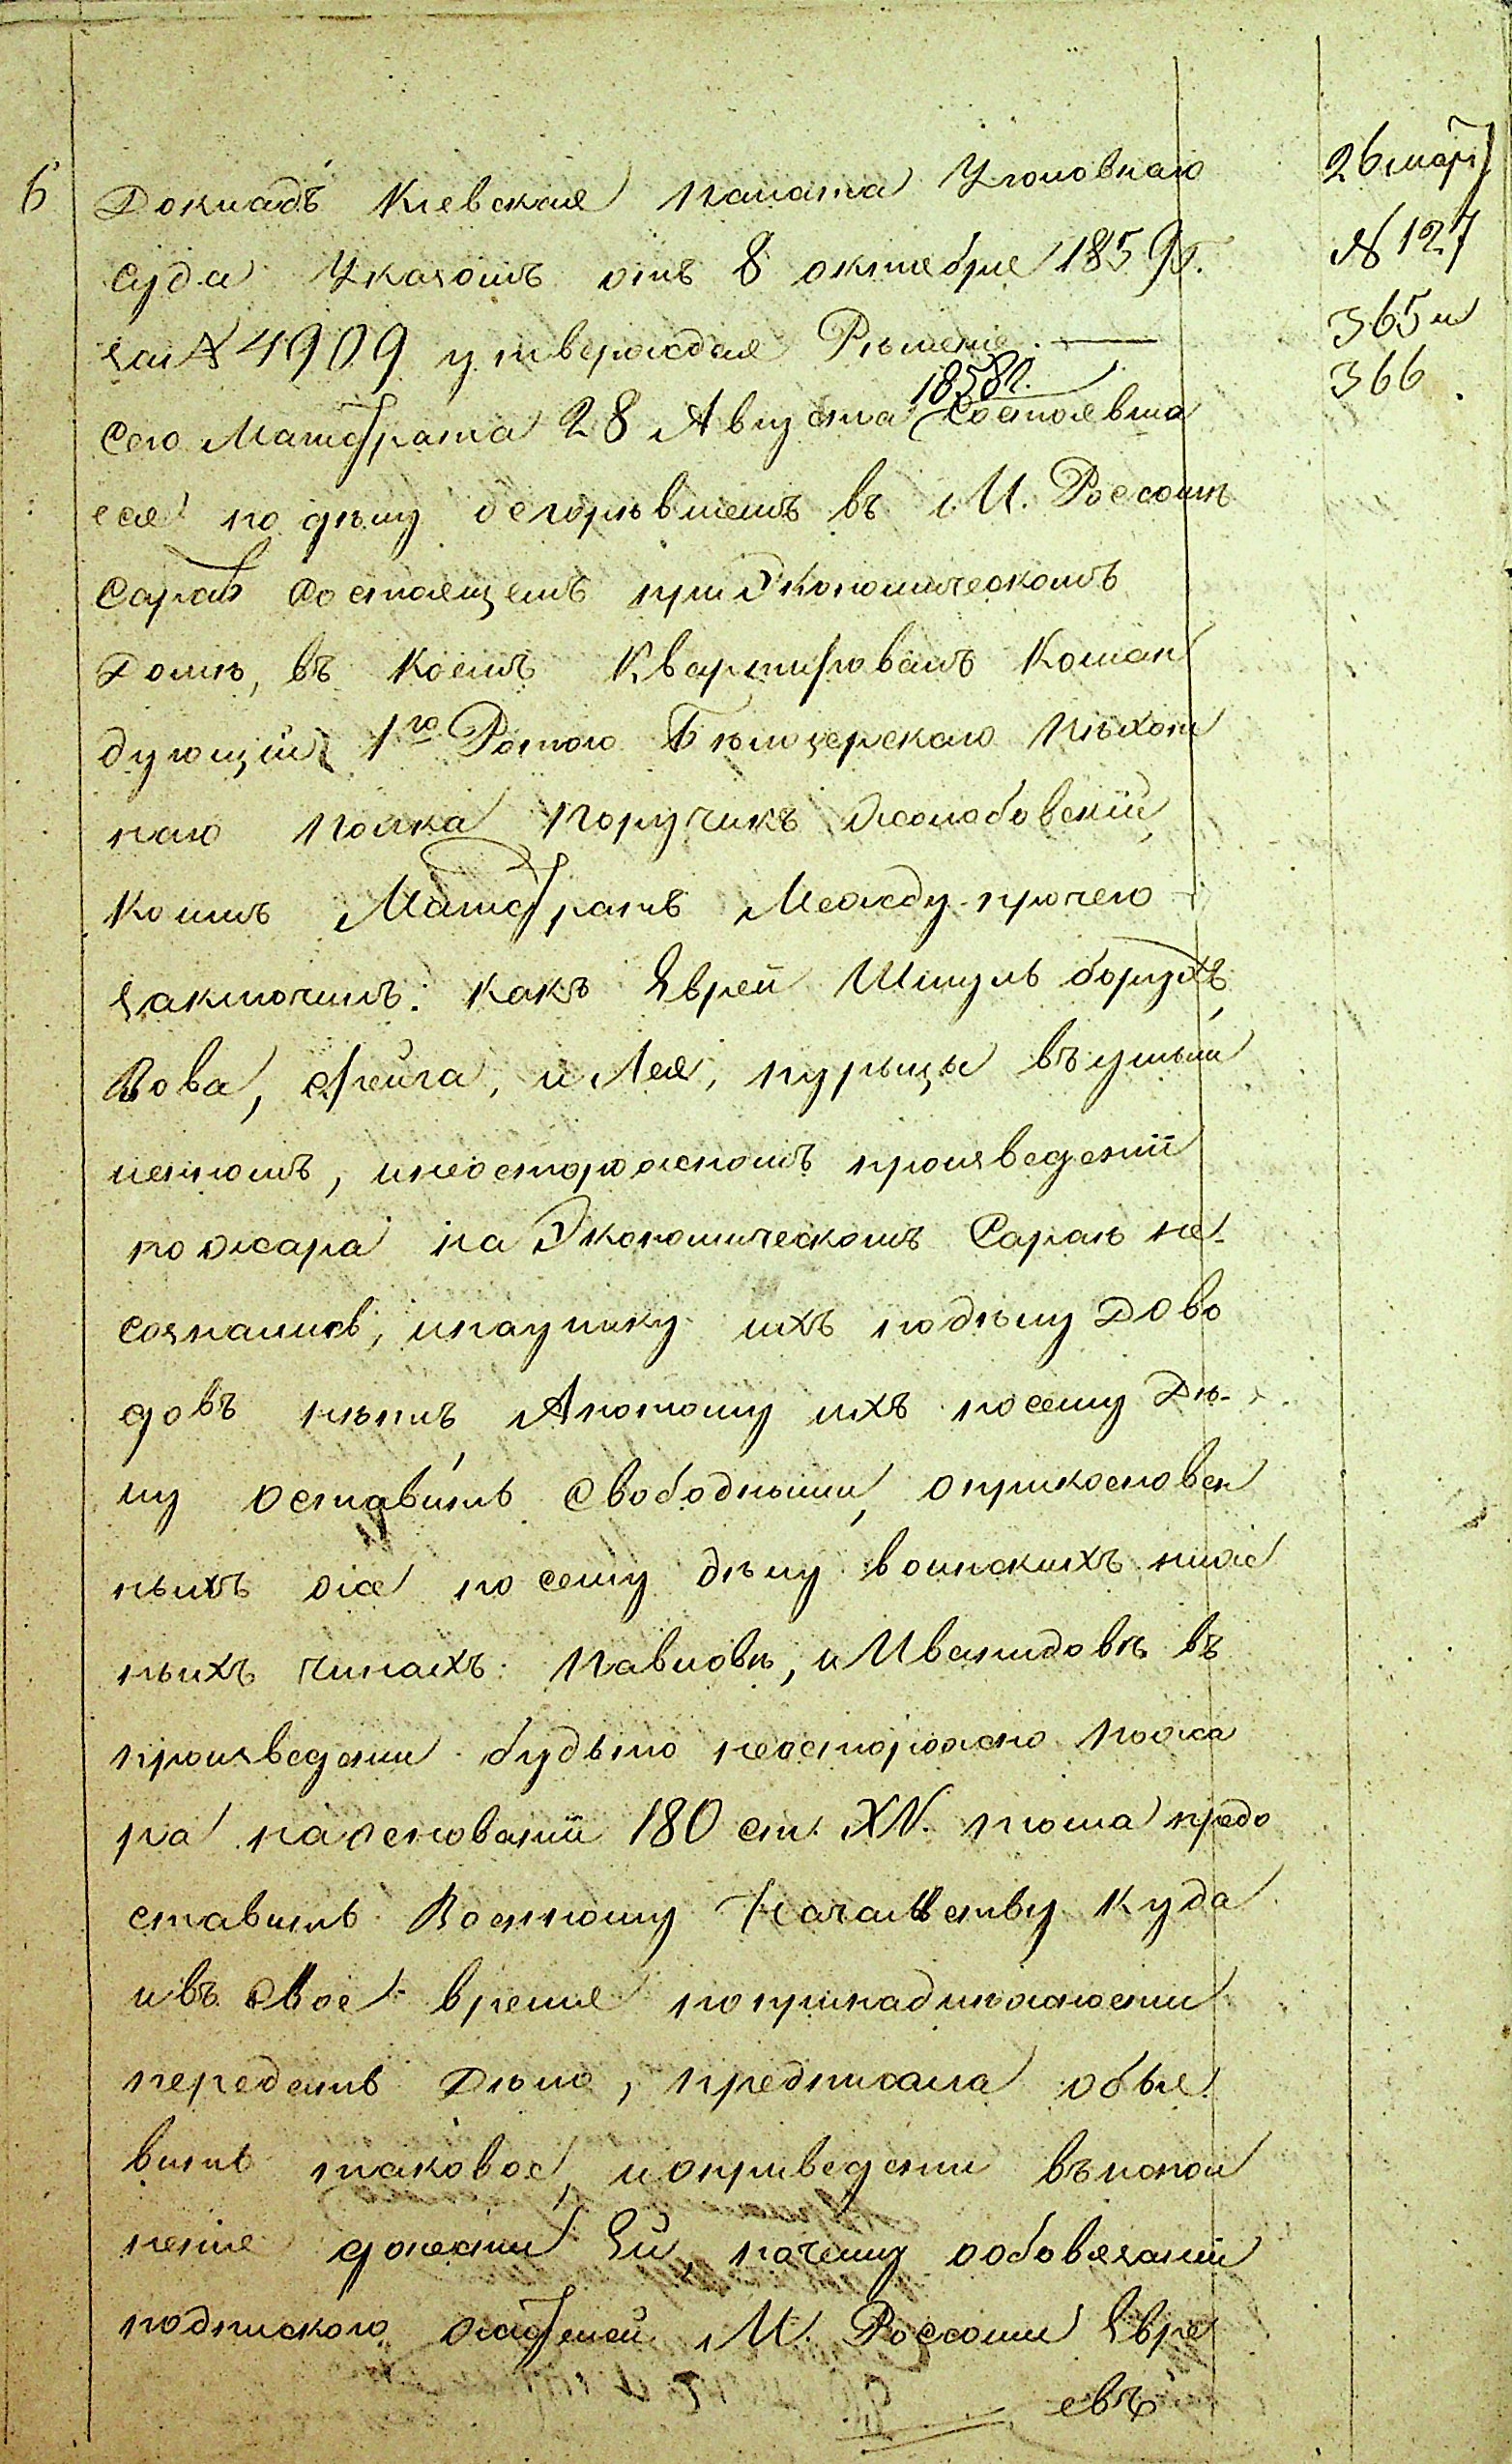 6
Докладъ Кіевская палата Уголовнаго
суда Указомъ отъ 8 октября 1859 г.
за № 4909 утверждая Рѣшеніе
сего Магистрата 28 Августа 1858 г. Состоявше
еся по дѣлу о сгорѣвшемъ въ М. Россошѣ
Сараѣ состоящемъ при Экономическомъ
Домѣ, въ коемъ Квартировалъ Коман
дующій 1го Ротою Бѣлозерскаго Пѣхот
наго Полка Поручикъ Жолобовскій,
коимъ Магистратъ Между-прочего
заключилъ: какъ Еврей Шмуль борухъ,
Вова, Фейга, и Лея, пурыцы въ умыш
ленномъ, инеосторожномъ произведеніи
пожара на Экономическомъ Сараѣ не-
сознались, инаулику ихъ подѣлу Дово
довъ нѣтъ, Апотому ихъ посему Дѣ-
лу оставить Свободными, оприкосновен
ныхъ же по сему дѣлу воинскихъ ниж
ныхъ чинахъ: Павловѣ, и Ивалидовѣ въ
произведении будьто неосторожно пожа
ра наосновании 180 ст. XV. тома предо
ставить Военному Начальству куда
ивъ Свое время попринадлѣжности
передать Дѣло, предписала объя
вить таковое, иоприведении въ испол
неніе донести Ей, почему ообовязаніи
подпискою жителей М. Россоши Евре
евъ
26 мар
№ 127
365 и
366